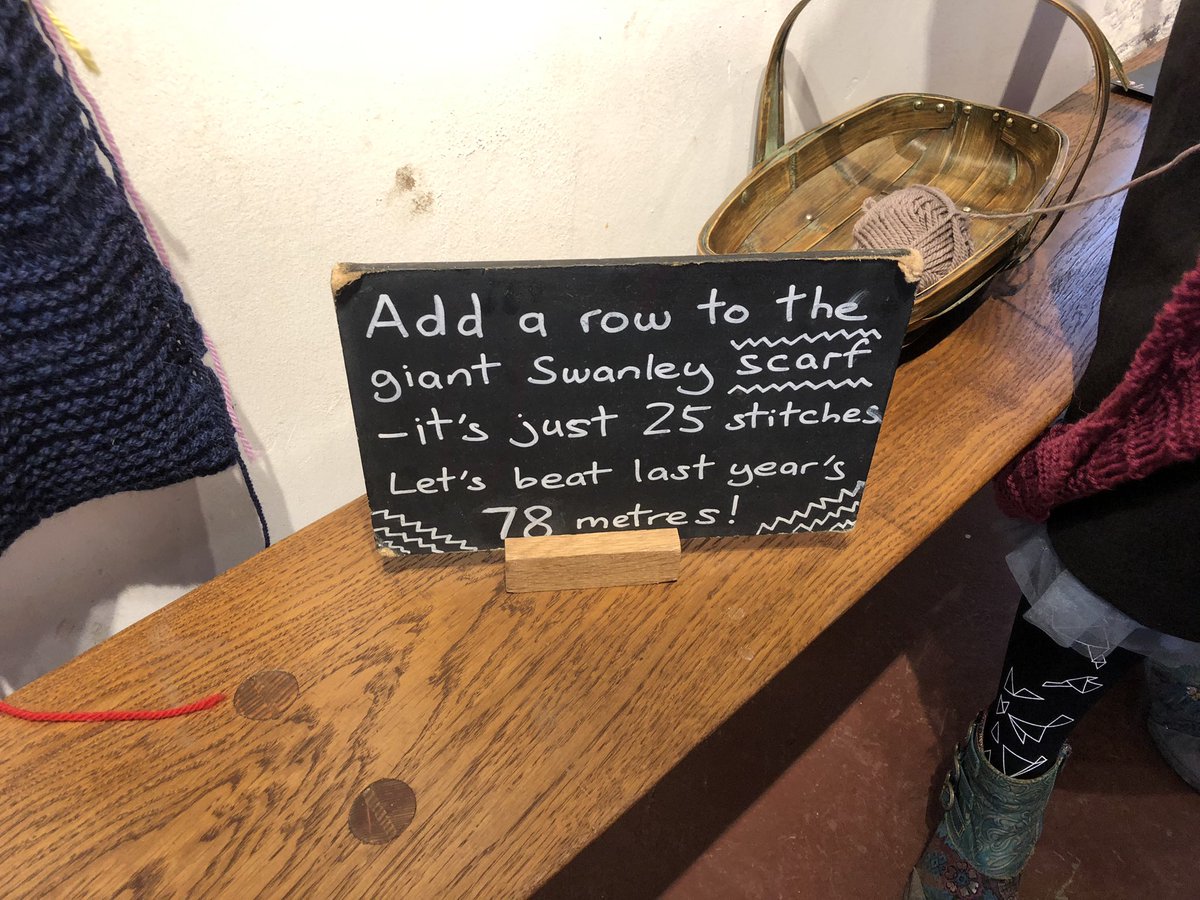 Add a row to the
giant Swanley scarf
-it's just 25 stitches
Let's beat last year's
78 metres!